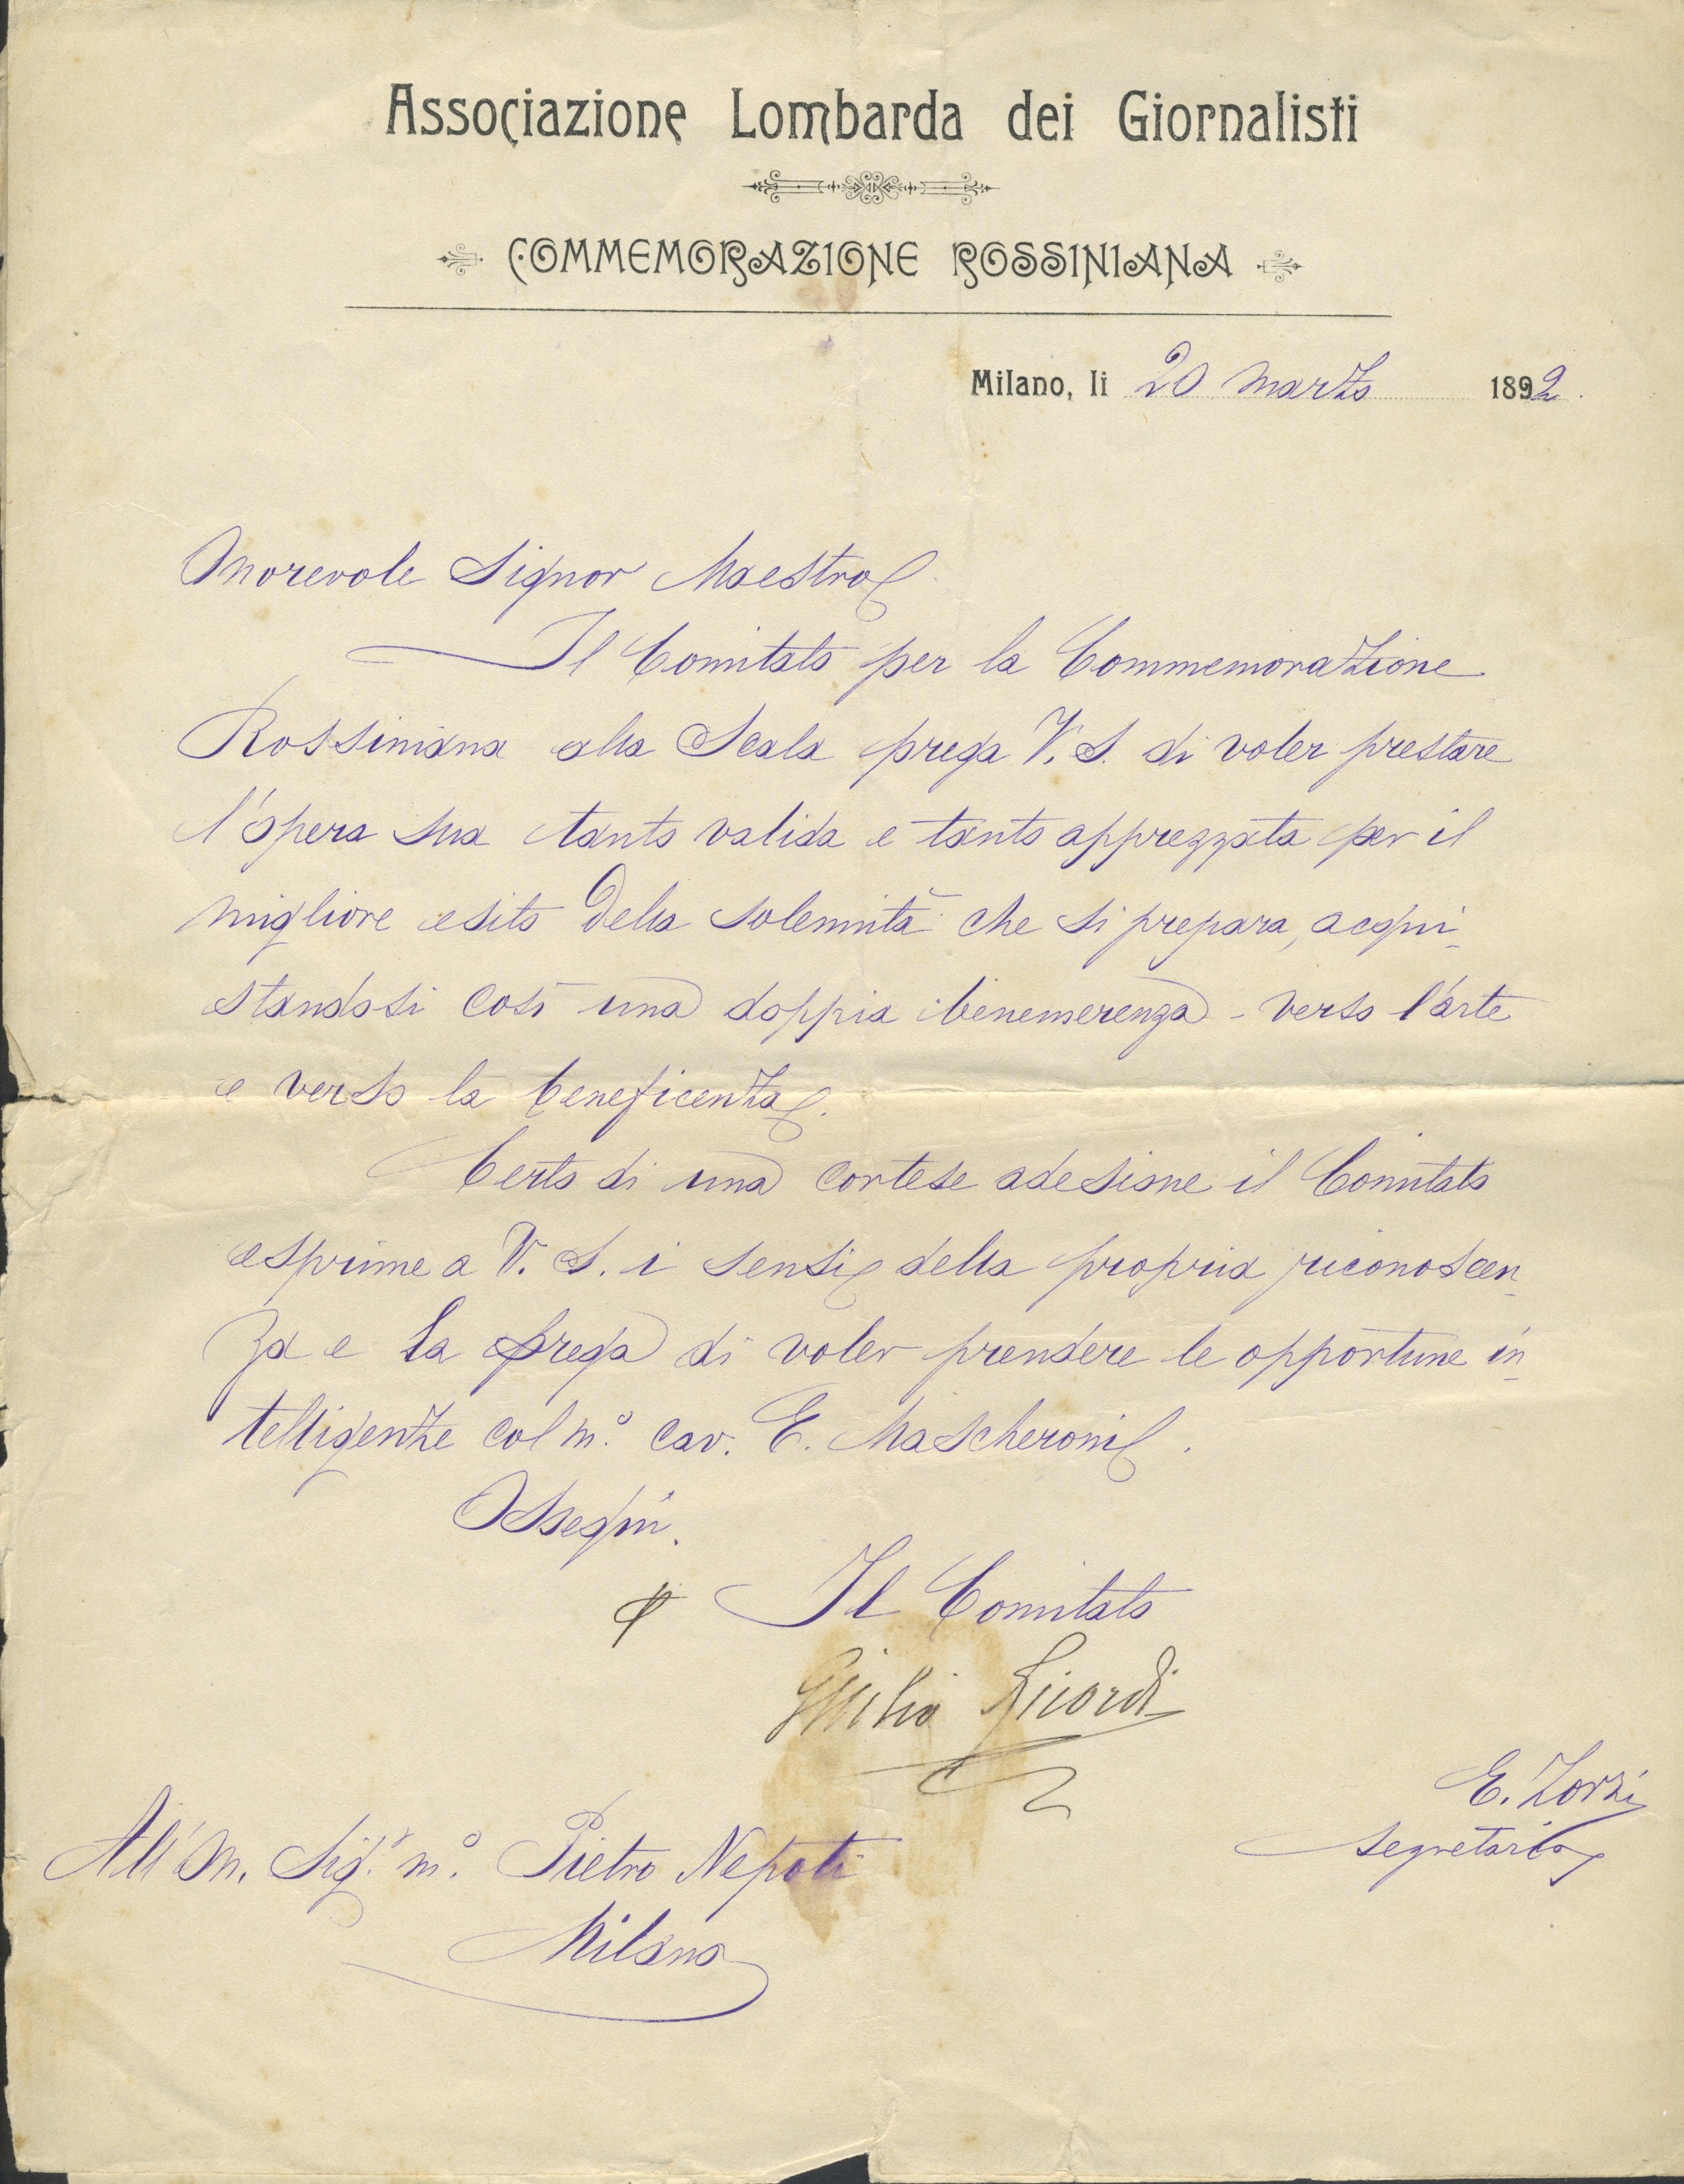 Associazione Lombarda dei Giornalisti
COMMEMORAZIONE ROSSINIANA
Milano, li 20 marzo 1892.
Onorevole Signor Maestro
Il Comitato per la Commemorazione
Rossiniana alla Scala prega V. S. di voler prestare
l'opera sua tanto valida e tanto apprezzata per il
migliore esito della solennità che si prepara, acqui-
standosi così una doppia benemerenza - verso l'arte
e verso la beneficenza.
Certo di una cortese adesione il Comitato
esprime a V. S. i sensi della propria riconoscen-
za e La prega di voler prendere le opportune in-
telligenze col m.o cav. E. Mascheroni.
Ossequi.
p Il Comitato
Giulio Ricordi
E. Zorzi
segretario
All' On. Sig.r m.o Pietro Nepoti
Milano